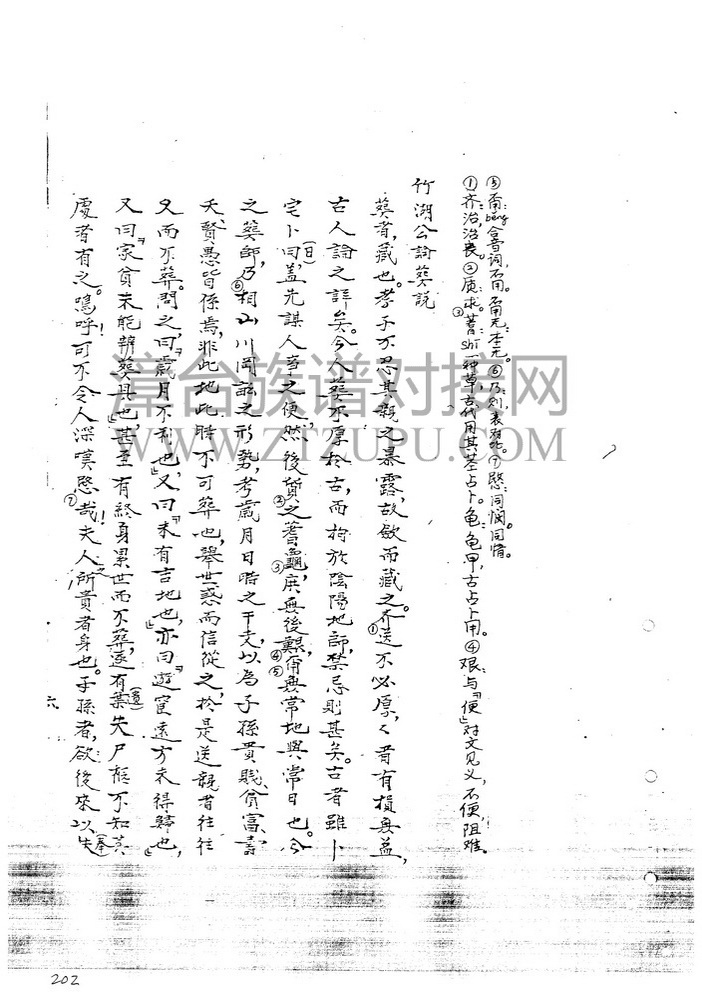 ⑤甭:béng合音词,不用。甭无:本无。⑥乃:则,表对比。⑦愍:同悯同情。
①齐:治,治丧。②质:求。③蓍:shī一种草,古代用其茎占卜。龟:龟甲,古占卜用。④艰:与“便”对文见义,不便,阻难。
竹湖公論葬説
葬者,藏也。孝子不忍其親之暴露,故斂而藏之。齐①送不必厚,々者有損無益,
古人論之詳矣。今人葬不厚於古,而拘於陰陽地師,禁忌則甚矣。古者雖卜
宅卜曰(日),盖先謀人事之便,然後質②之蓍龜③,庶無後艱④,甭⑤無常地與常日也。今
之葬師,乃⑥相山川岡 之形勢,考歲月日時之干支,以為子孫貴賤、貧富、壽
夭、賢愚皆係焉,非此地此時不可葬也,舉世惑而信從之,於是送親者往往
久而不葬。問之,曰:“歲月不利也”,又曰:“未有吉地也”,亦曰:“遊宦遠方未得歸也”,
又曰:“家貧未能辨葬具也”,甚至有終身累世而不葬,遂有棄失尸柩不知其
處者有之。嗚呼!可不令人深嘆愍⑦哉!夫人之所貴者身也。子孫者,欲後來以失
六
草台族谱对接网
WWW.ZTZUPU.COM
202